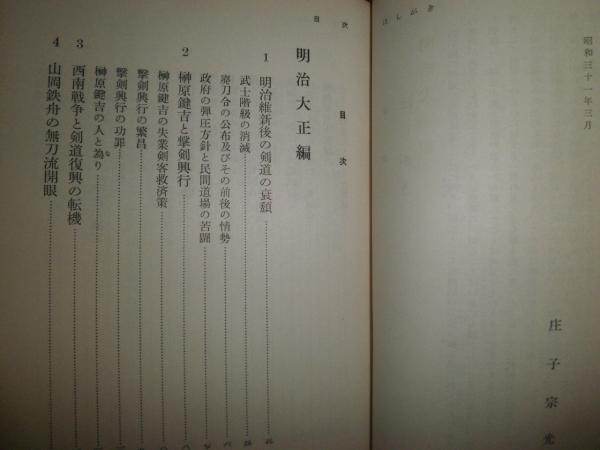 はしがき
昭和三十一年三月
庄子宗光
目次
目次
明治大正編
1 明治維新後の剣道の衰頽
武士階級の消滅
廃刀令の公布及びその前後の情勢
政府の弾圧方針と民間道場の苦闘
2 榊原鍵吉と撃剣興行
榊原鍵吉の失業剣客救済策
撃剣興行の繁昌
撃剣興行の功罪
榊原鍵吉の人と為り
な
3 西南戦争と剣道復興の転機
4 山岡鉄舟の無刀流開眼